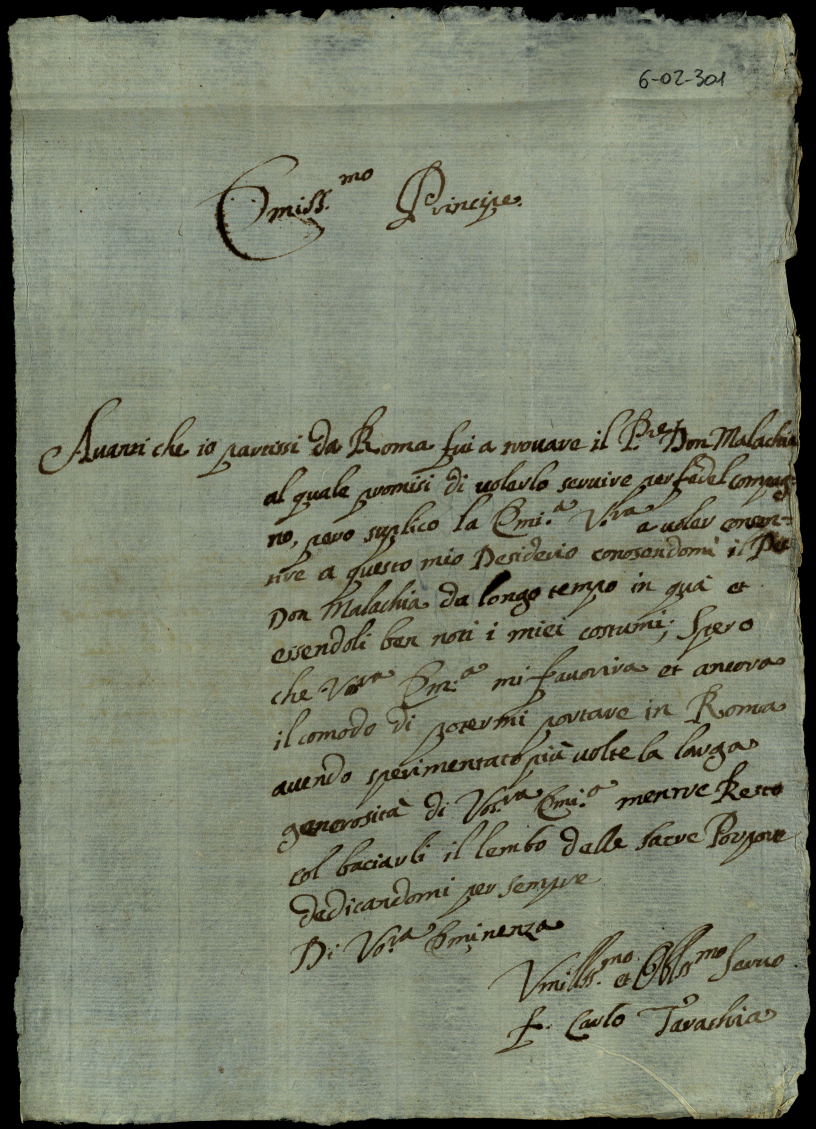 6-02-301
Emiss.mo Principe.
Avanti che io partissi da Roma fui a trovare il P.re Don Malachia
al quale promisi di volerlo servire per fedel compag=
no, pero suplico la Emi.a V.ra a voler consen=
tire a questo mio Desiderio conosendomi il
Don Malachia da longo tempo in quà et
essendoli ben noti i miei costumi; Spero
che Vos.ra Em.a mi favorira et ancora
il comodo di potermi portare in Roma
avendo sperimentato più volte la larga
generosità di Vos.ra Emi.a mentre Resto
col baciarli il lembo delle sacre Porpore
dedicandomi per sempre
Di Vos.ra Eminenza
Vmiliss.mo et Obliss.mo Servo
f. Carlo